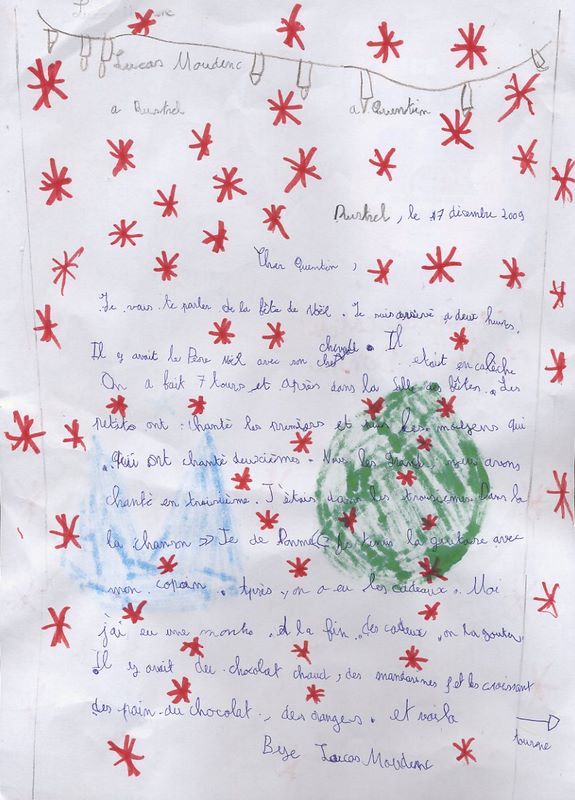 Lucas Moudenc
a Rustrel
a Quentin
Rustrel, le 17 décembre 2009
Cher Quentin,
Je vais te parler de la fête de Noël. Je suis arrivé a deux heures.
Il y avait le Père Noël avec son cheval. Il etait en calèche
On a fait 7 tours et après dans la salle des fêtes. Les
petits ont chanté les premiers et les moyens qui
qui ont chanté deuxièmes. Nous les grands, nous avons
chanté en troisième. J'étais dans les troisièmes. Dans la
la chanson >> Je te donne la guitare avec
mon copain. Après, on a eu les cadeaux. Moi
j'ai eu une montre. A la fin des cadeaux, on a gouter
Il y avait du chocolat chaud, des mandarines, et les croissant
des pain du chocolat, des oranges. et voila
Bye Lucas Moudenc
tourne